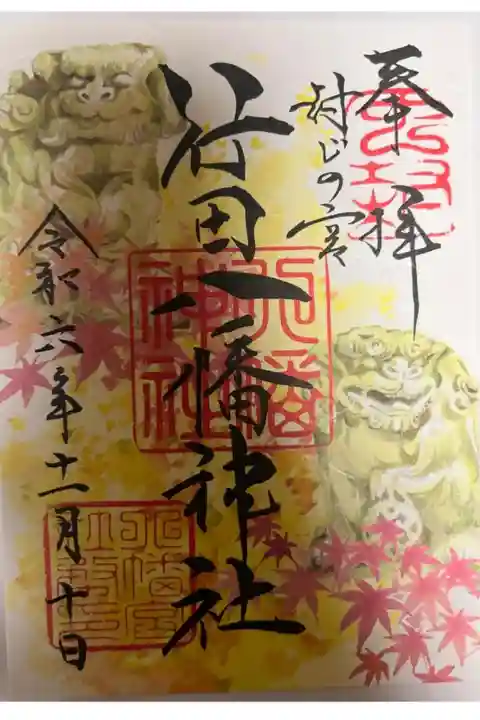 奉拝
封じの宮
行田八幡神社
令和六年十一月十日
八幡神社